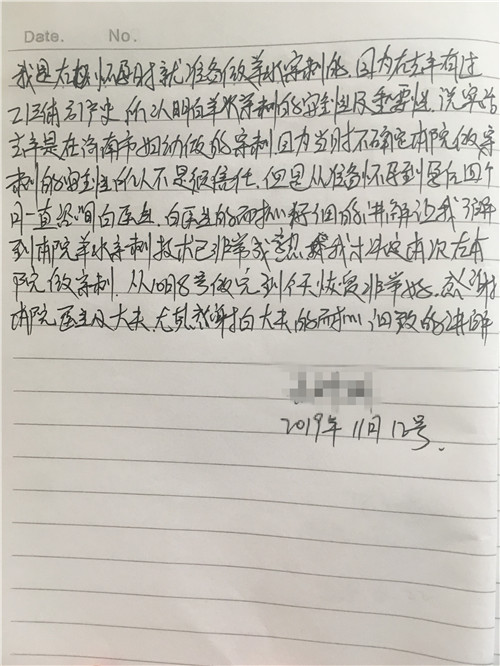 Date. No.
我是在怀孕时就准备做羊水穿刺的,因为在去年有过
21三体引产史,所以明白羊水穿刺的安全性及重要性,说实话
去年是在济南市妇幼做的穿刺,因为当时不确定本院做穿
刺的安全性所以不是很信任,但是从准备怀孕到孕后四个
月一直咨询白医生,白医生的耐心仔细的讲解让我了解
到本院羊水穿刺技术已非常成熟,我才决定本次在本
院做穿刺,从10月8号做完到今天恢复非常好,感谢
本院医生及大夫,尤其感谢白大夫的耐心,细致的讲解
2019年11月12号.